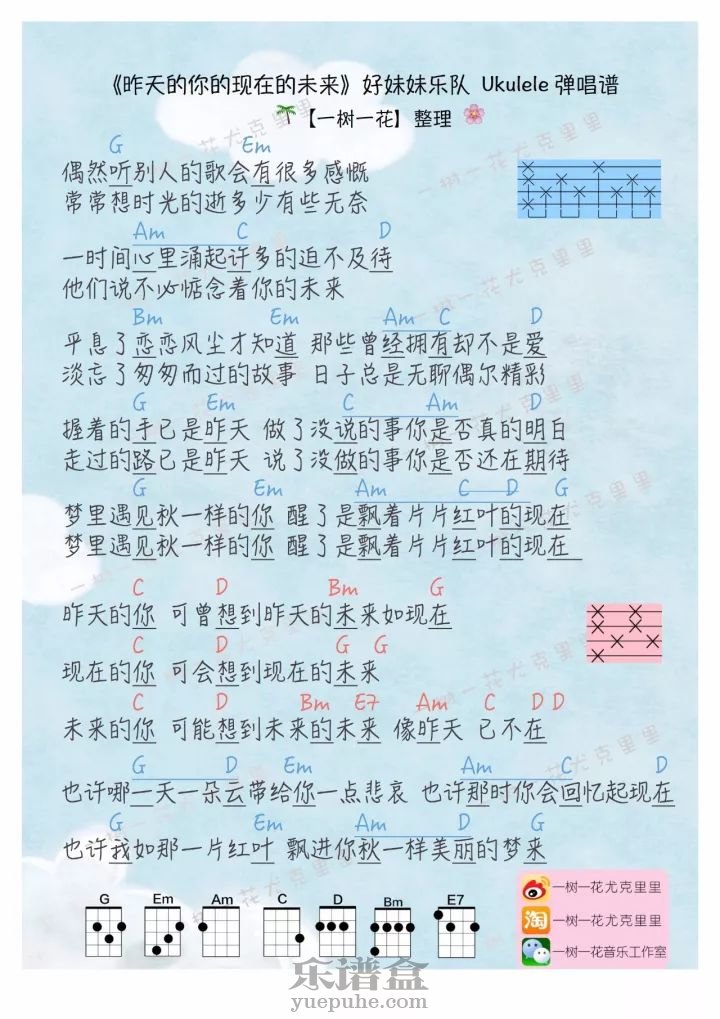 《昨天的你的现在的未来》好妹妹乐队 Ukulele 弹唱谱
【一树一花】整理
G Em
偶然听别人的歌会有很多感慨
常常想时光的逝多少有些无奈
Am C D
一时间心里涌起许多的迫不及待
他们说不必惦念着你的未来
Bm Em Am C D
平息了恋恋风尘才知道 那些曾经拥有却不是爱
淡忘了匆匆而过的故事 日子总是无聊偶尔精彩
G Em C Am D
握着的手已是昨天 做了没说的事你是否真的明白
走过的路已是昨天 说了没做的事你是否还在期待
G Em Am C D G
梦里遇见秋一样的你 醒了是飘着片片红叶的现在
梦里遇见秋一样的你 醒了是飘着片片红叶的现在
C D Bm G
昨天的你 可曾想到昨天的未来如现在
C D G G
现在的你 可会想到现在的未来
C D Bm E7 Am C D D
未来的你 可能想到未来的未来 像昨天 已不在
G D Em Am C D
也许哪一天一朵云带给你一点悲哀 也许那时你会回忆起现在
G Em Am D G
也许我如那一片红叶 飘进你秋一样美丽的梦来
G Em Am C D Bm E7
一树一花尤克里里
淘 一树一花尤克里里
一树一花音乐工作室
乐谱盒
yuepuhe.com